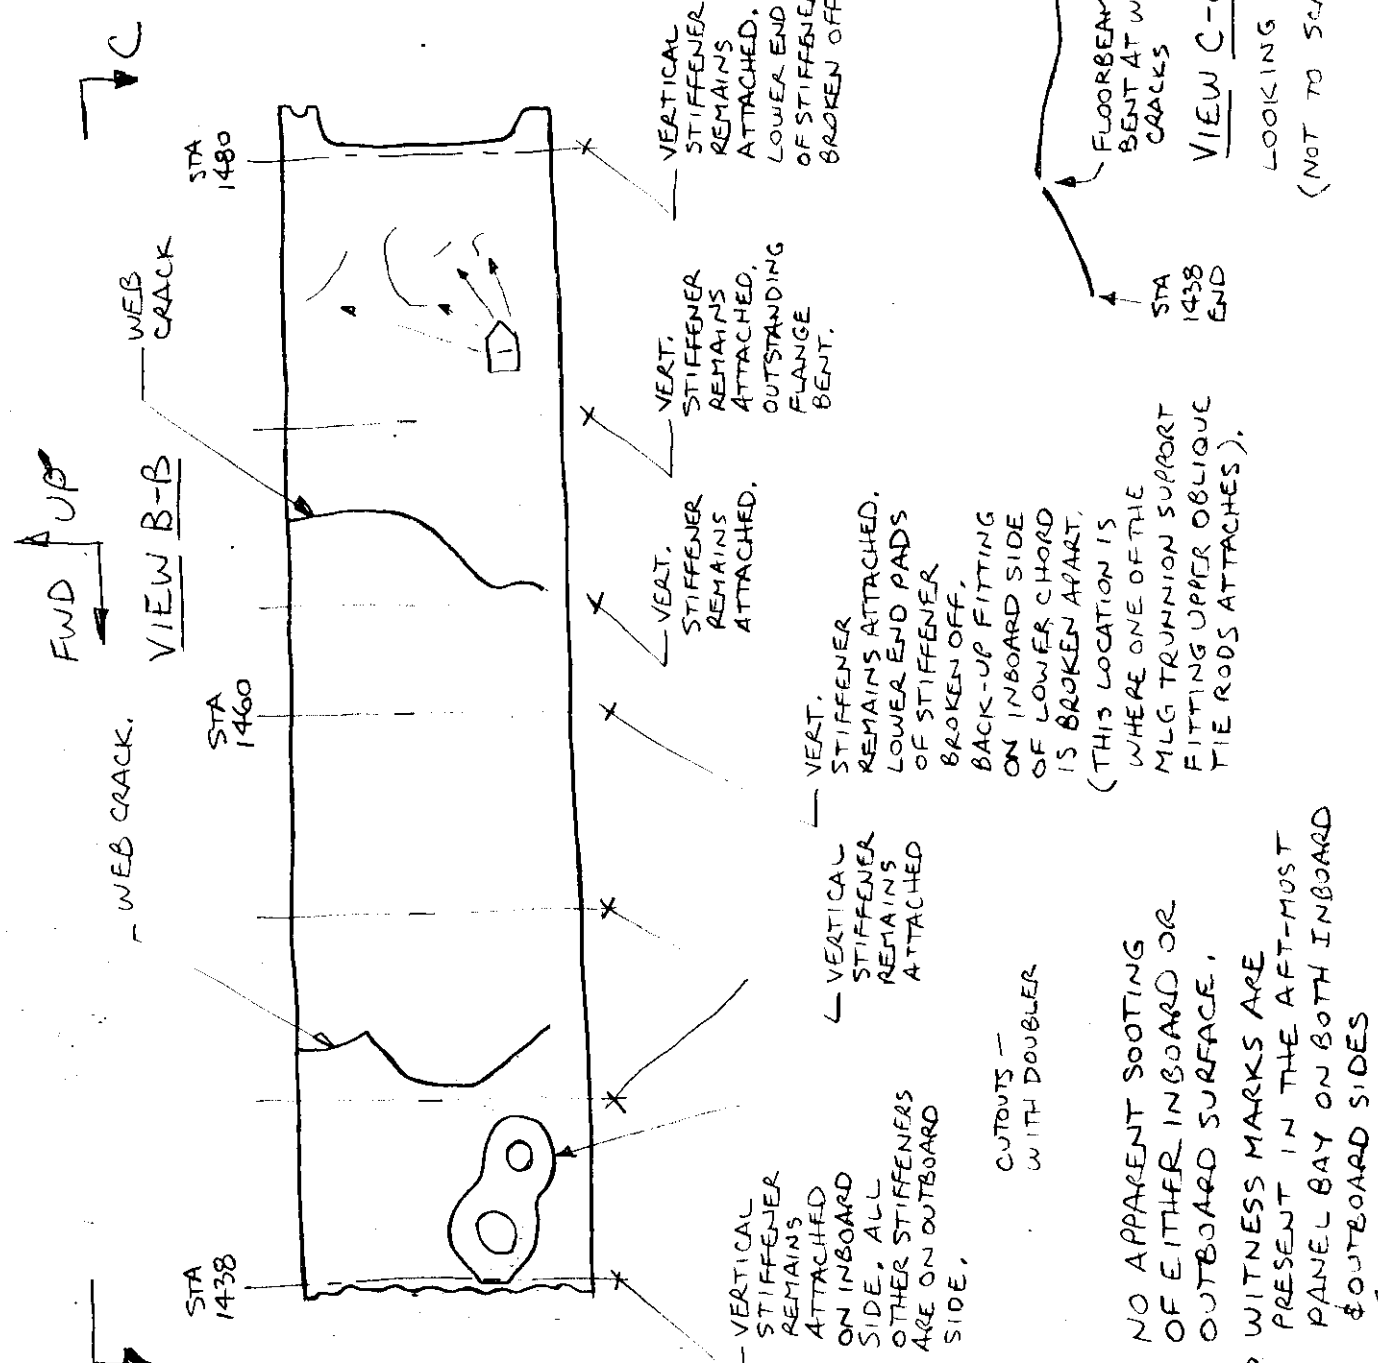 FWD
UP
VIEW B-B
C
WEB CRACK.
WEB
CRACK
STA
1438
STA
1460
STA
1480
VERTICAL
STIFFENER
REMAINS
ATTACHED
ON INBOARD
SIDE. ALL
OTHER STIFFENERS
ARE ON OUTBOARD
SIDE.
VERTICAL
STIFFENER
REMAINS
ATTACHED
VERT.
STIFFENER
REMAINS ATTACHED.
LOWER END PADS
OF STIFFENER
BROKEN OFF.
BACK-UP FITTING
ON INBOARD SIDE
OF LOWER CHORD
IS BROKEN APART.
(THIS LOCATION IS
WHERE ONE OF THE
MLG TRUNNION SUPPORT
FITTING UPPER OBLIQUE
TIE RODS ATTACHES).
VERT.
STIFFENER
REMAINS
ATTACHED.
VERT.
STIFFENER
REMAINS
ATTACHED.
OUTSTANDING
FLANGE
BENT.
VERTICAL
STIFFENER
REMAINS
ATTACHED.
LOWER END
OF STIFFENE
BROKEN OFF
CUTOUTS -
WITH DOUBLER
NO APPARENT SOOTING
OF EITHER INBOARD OR
OUTBOARD SURFACE.
WITNESS MARKS ARE
PRESENT IN THE AFT-MOST
PANEL BAY ON BOTH INBOARD
& OUTBOARD SIDES
STA
1438
END
FLOORBEAM
BENT AT W
CRACKS
VIEW C-
LOOKING
(NOT TO SCA